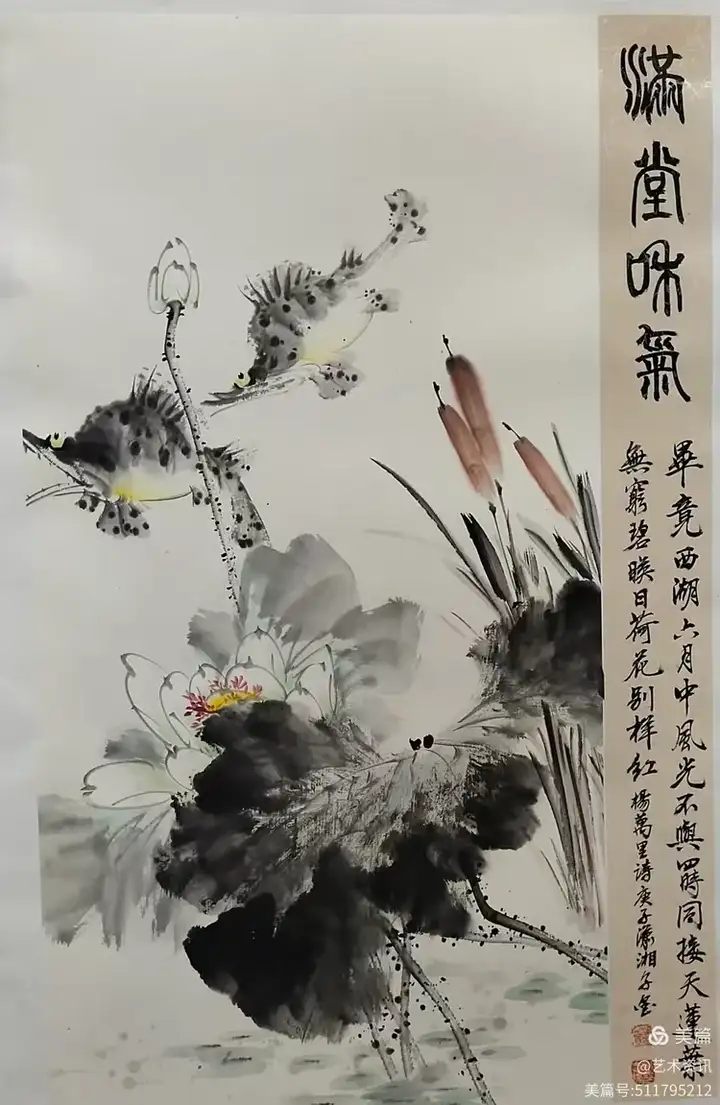 滿堂和氣
畢竟西湖六月中風光不與四時同接天蓮葉
無窮碧暎日荷花别樣紅楊萬里诗庚子瀟湘子
美篇
@艺术资讯
美篇号:511795212